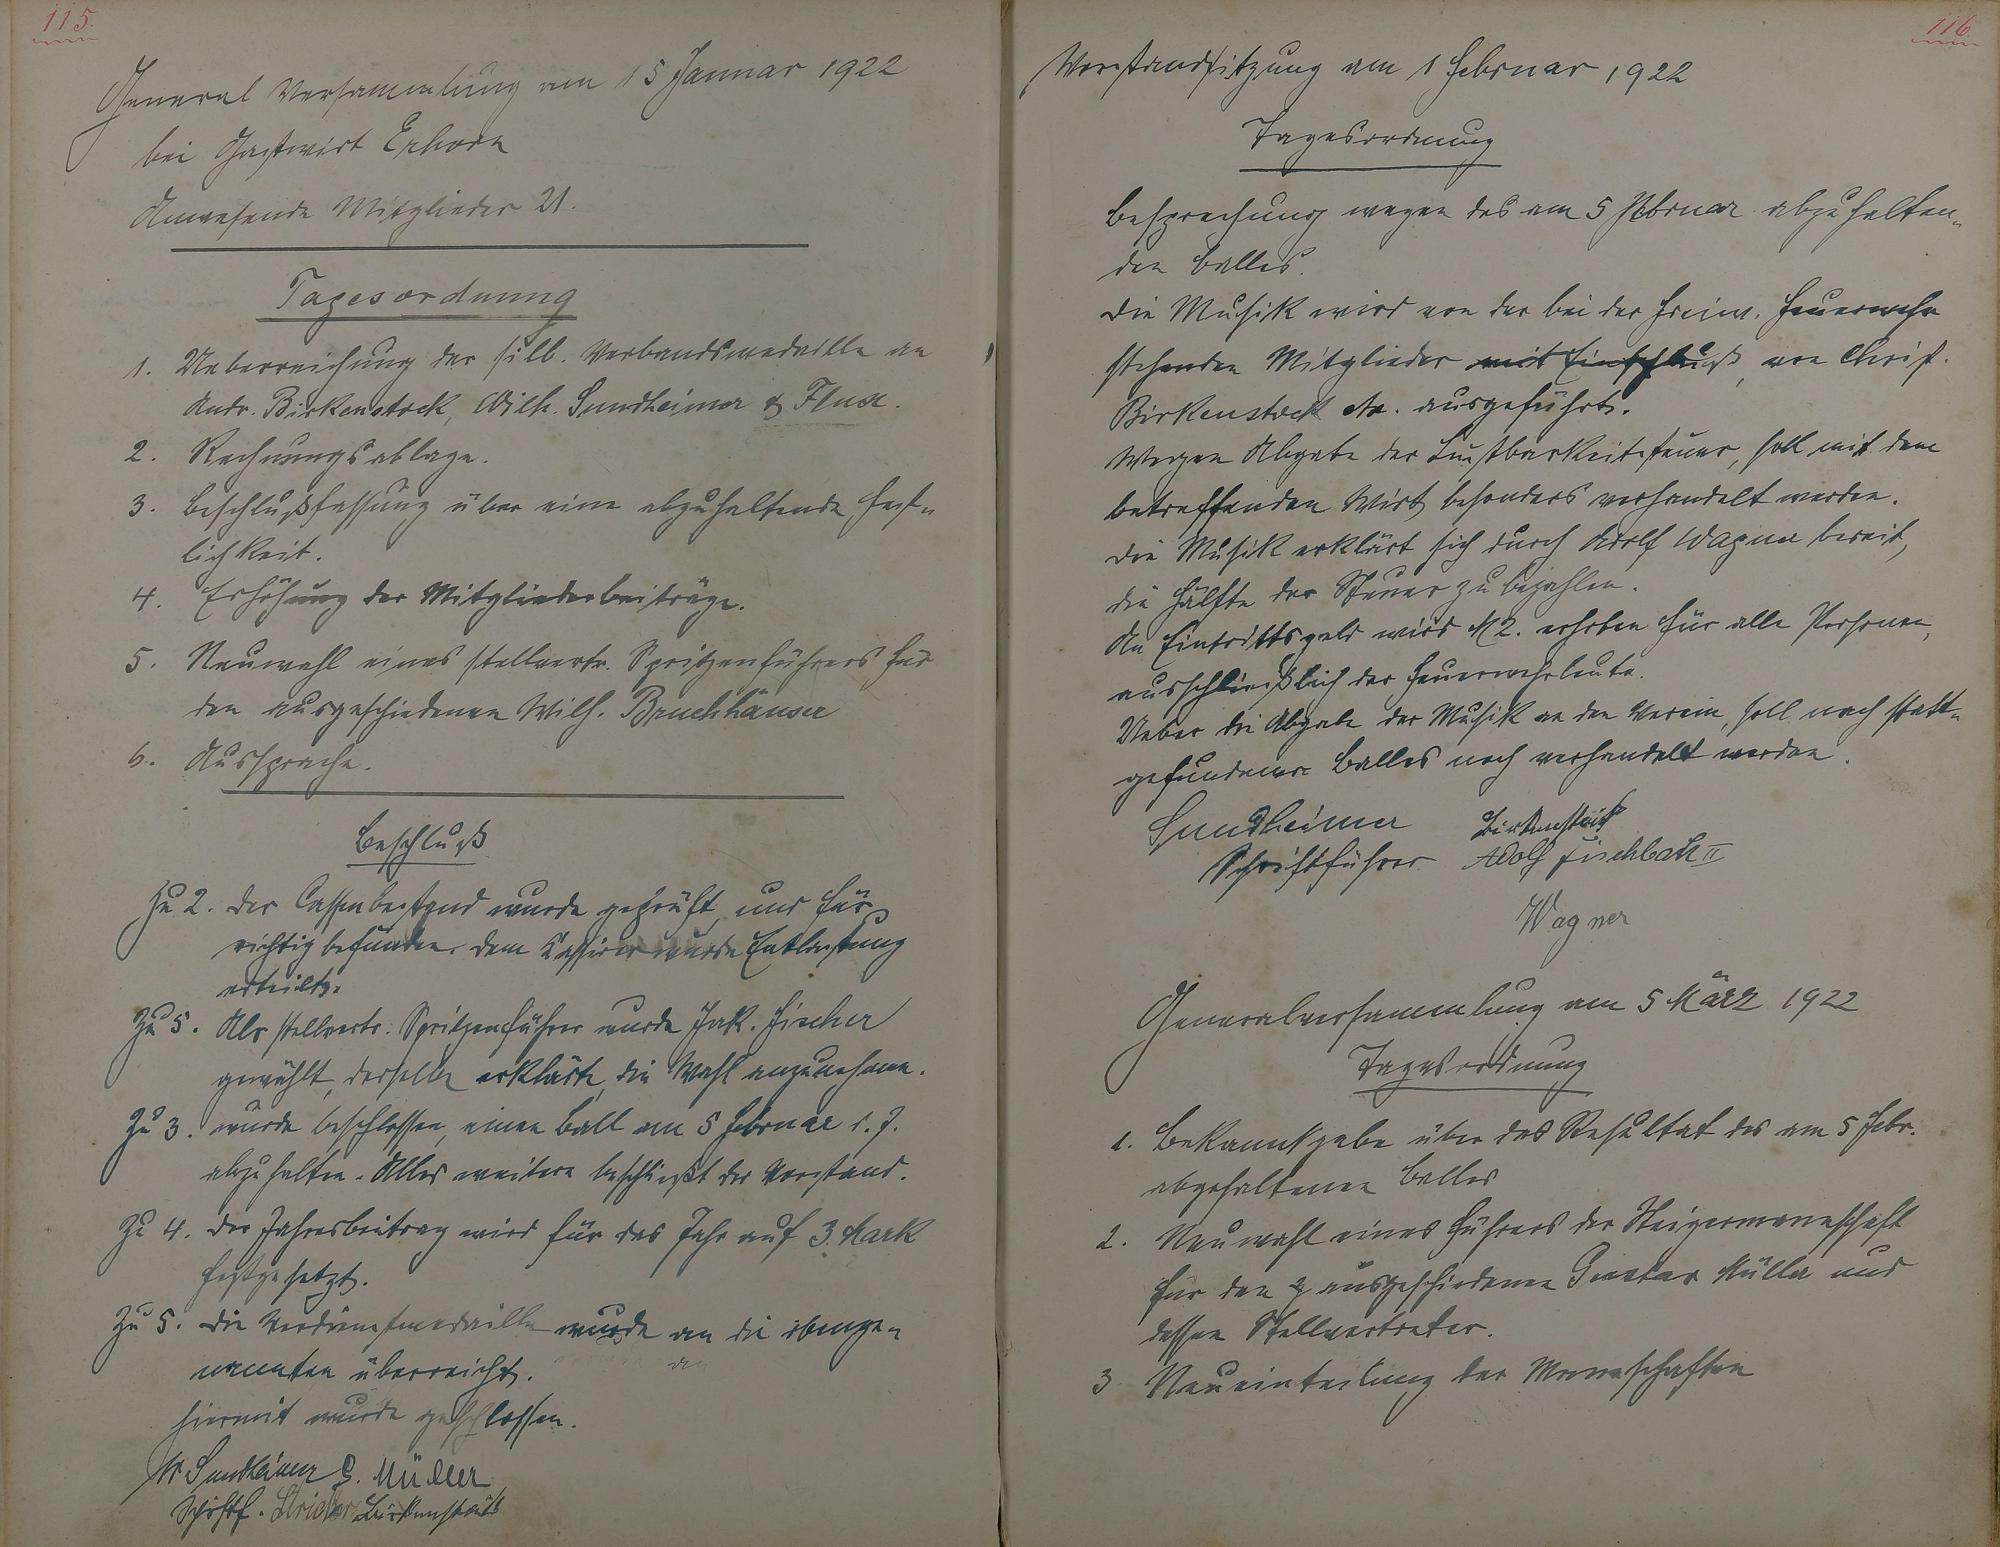 115.
General Versammlung am 15 Januar 1922
bei Gastwirt Erhorn
Anwesende Mitglieder 21.
Tagesordnung
1. Ueberreichung der silb. Verbandsmedaille an
Andr. Birkenstock, Wilh. Sundheimer &
2. Rechnungsablage.
3. Beschlußfassung über eine abzuhaltende Fest-
lichkeit.
4. Erhöhung der Mitgliederbeiträge.
5. Neuwahl eines stellvertr. Spritzenführers für
den ausgeschiedenen Wilh. Bruchhäuser
6. Aussprache.
Beschluß
Zu 2. Der Cassenbestand wurde geprüft und für
richtig befunden. Dem Kassirer wurde Entlastung
erteilt.
Zu 5. Als stellvertr. Spritzenführer wurde Jak. Fischer
gewählt, derselbe erklärte, die Wahl anzunehmen.
Zu 3. wurde beschlossen, einen Ball am 5 Februar d. J.
abzuhalten. Alles weitere beschließt der Vorstand.
Zu 4. Der Jahresbeitrag wird für das Jahr auf 3 Mark
festgesetzt.
Zu 5. Die Verdienstmedaille wurde an die obenge-
nannten überreicht.
Hiermit wurde geschlossen.
W Sundheimer G. Müller
Schriftf. Birkenstock
116.
Vorstandsitzung am 1 Februar 1922
Tagesordnung
Besprechung wegen des am 5 Februar abzuhalten-
den Balles.
Die Musik wird von der bei der Freiw. Feuerwehr
stehenden Mitglieder mit Einschluß, von Christ.
Birkenstock etc. ausgeführt.
Wegen Abgabe der Lustbarkeitssteuer, soll mit dem
betreffenden Wirt besonders verhandelt werden.
Die Musik erklärt sich durch Adolf Wagner bereit,
die Hälfte der Steuer zu bezahlen.
An Eintrittsgeld wird M 2. erhoben für alle Personen,
ausschließlich der Feuerwehrleute.
Ueber die Abgabe der Musik an den Verein, soll nach statt-
gefundenen Balles noch verhandelt werden.
Sundheimer Birkenstock
Schriftführer Adolf Fischbach II
Wagner
Generalversammlung am 5 März 1922
Tagesordnung
1. Bekanntgabe über das Resultat des am 5 Febr.
abgehaltenen Balles
2. Neuwahl eines Führers der Steigermannschaft
für den ausgeschiedenen Gustav Müller und
dessen Stellvertreter.
3 Neueinteilung der Mannschaften